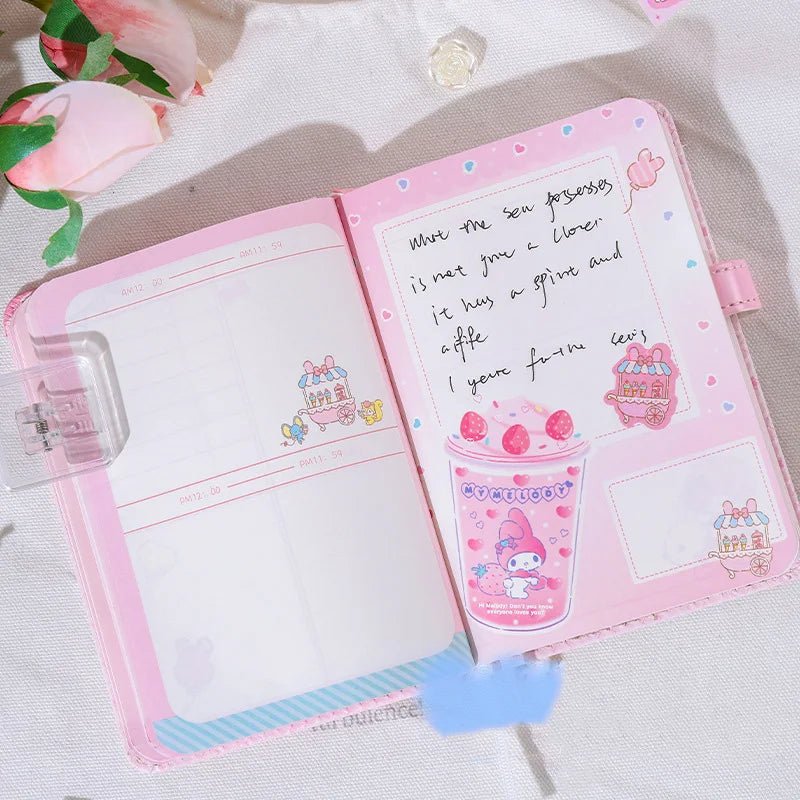 AM12: 00 AM11: 59
PM12: 00 PM11: 59
What the sea possesses
is not you a lover
it has a spirit and
a life
I yearn for the sea's
MY MELODY
Hi Melody! Don't you know
everyone loves you!!
turbulence